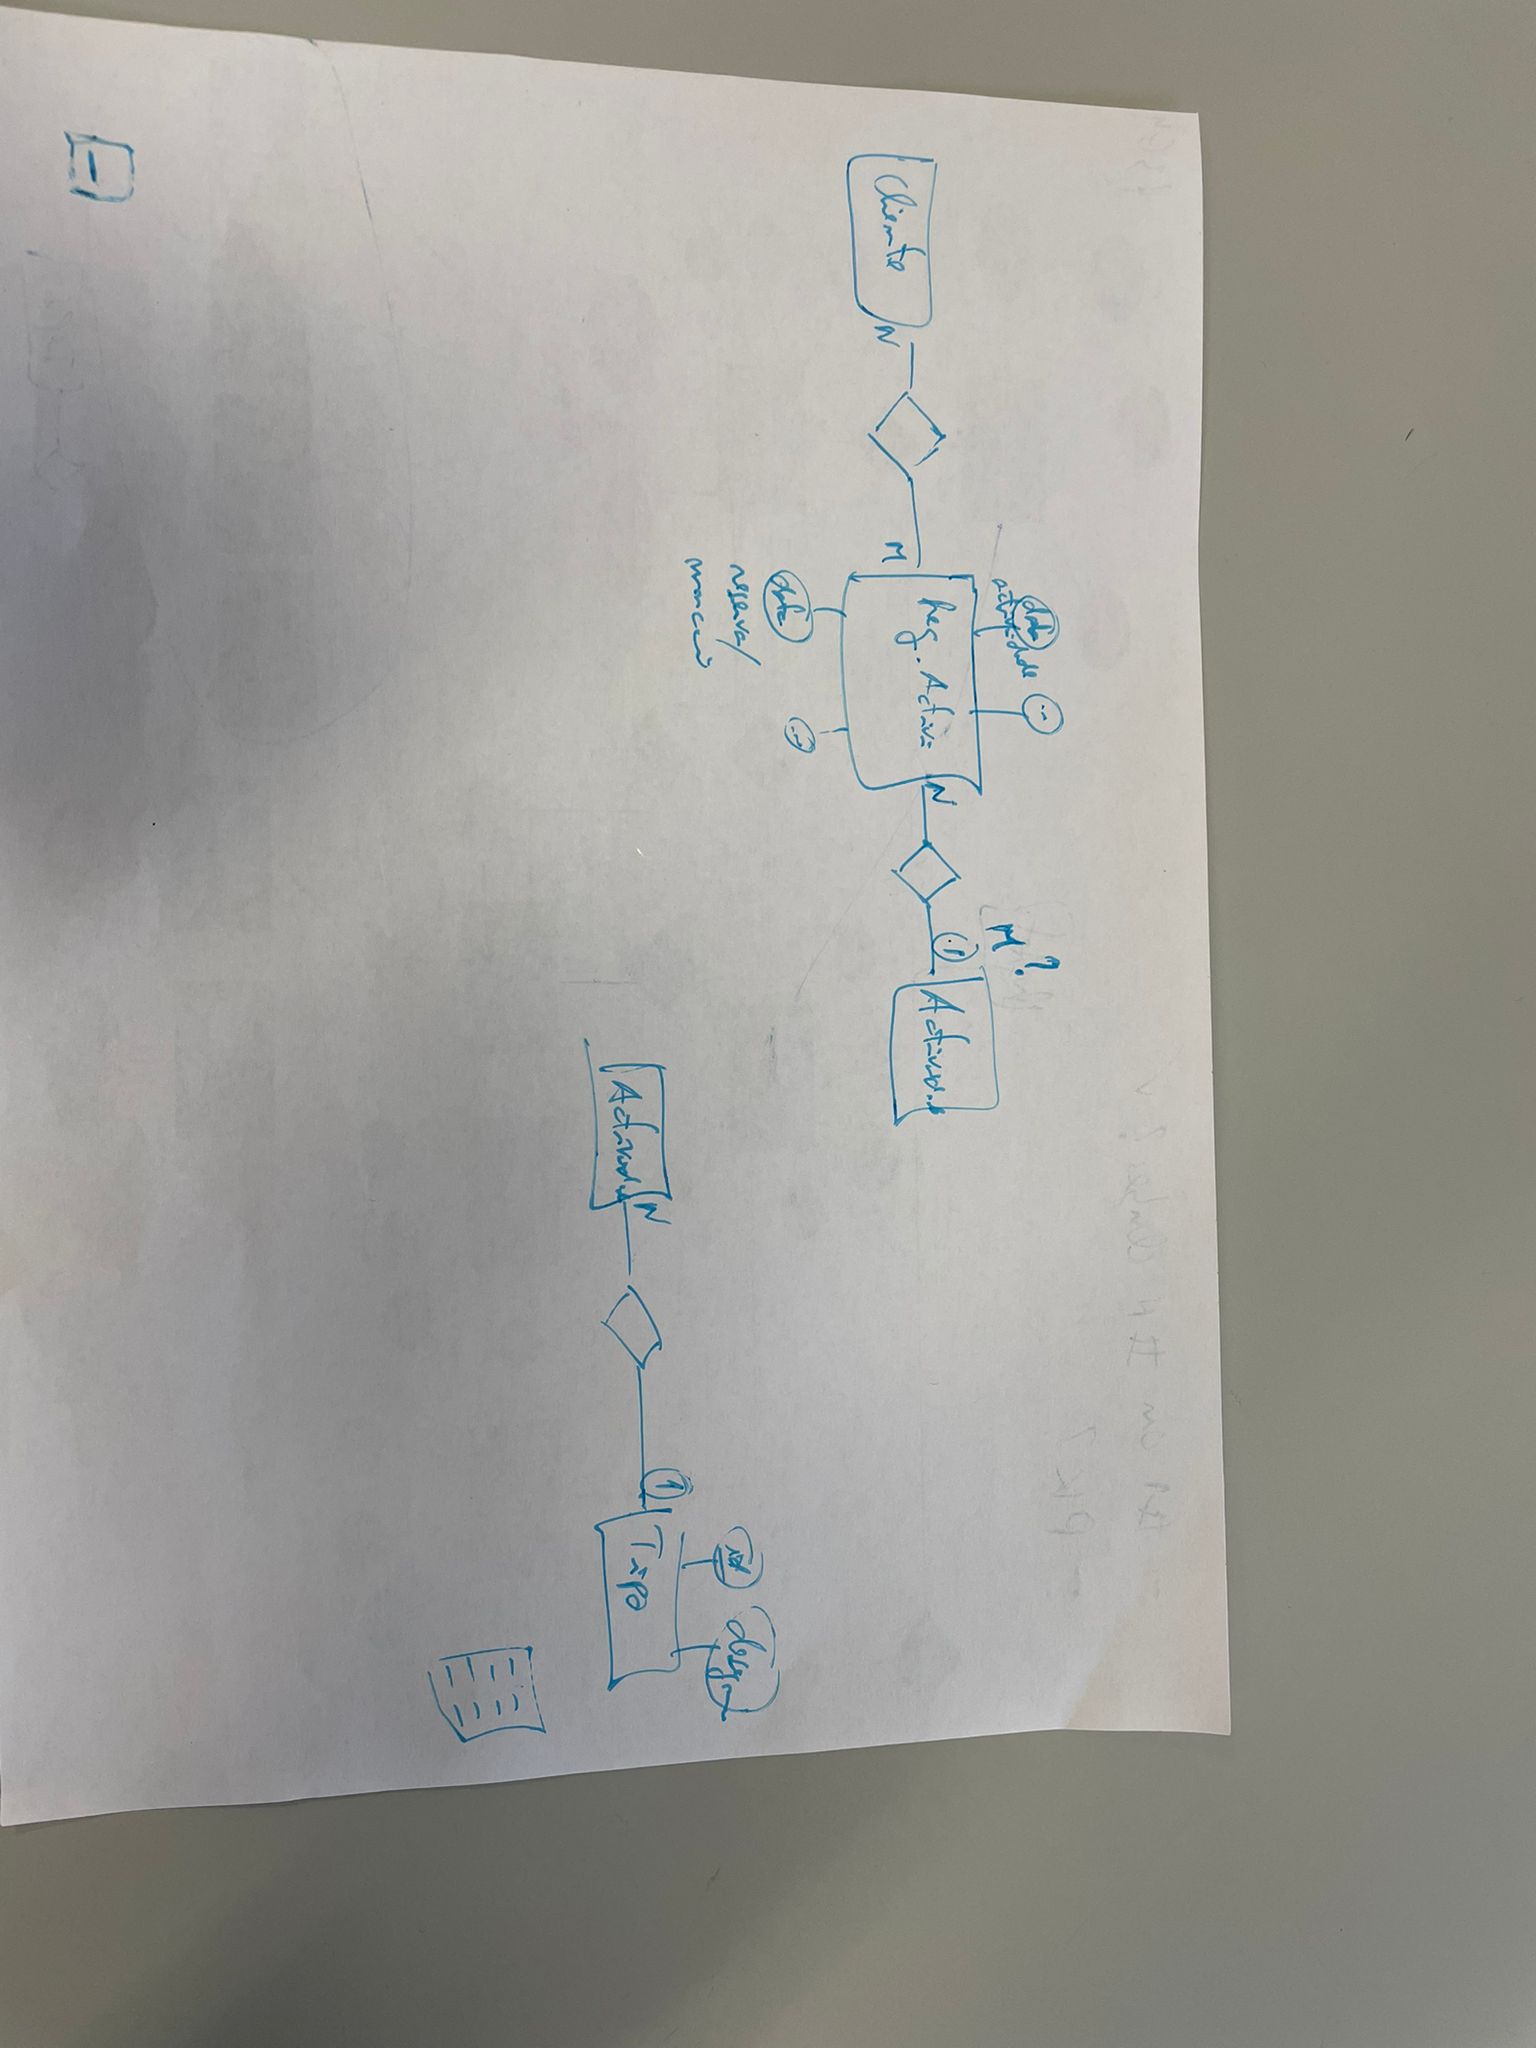 data
actividade
Cliente
N
M
Reg. Activi
N
M ?
1
Activid
data
reserva/
marcação
id
desig
Activid
N
1
Tipo